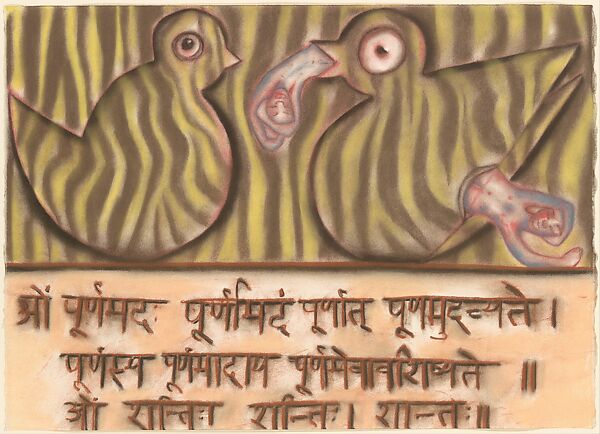 ओं पूर्णमदः पूर्णामिदं पूर्णात् पूणमुदव्यते।
पूर्णंस्य पूर्णमादाय पूर्णमेवावशिष्यते ॥
ओं शान्तिः शान्तिः। शान्तः॥